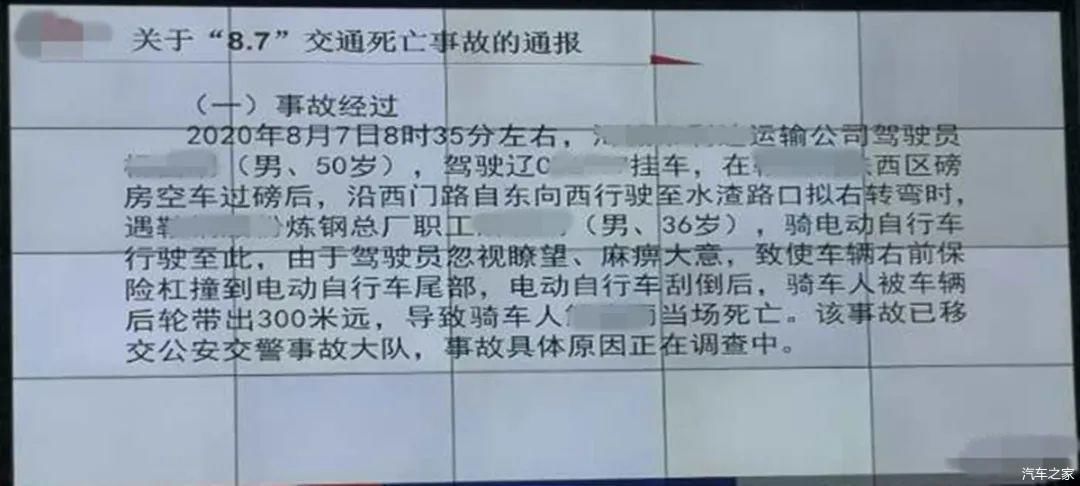 关于“8.7”交通死亡事故的通报
（一）事故经过
2020年8月7日8时35分左右，运输公司驾驶员
（男、50岁），驾驶辽挂车，在西区磅
房空车过磅后，沿西门路自东向西行驶至水渣路口拟右转弯时，
遇炼钢总厂职工（男、36岁），骑电动自行车
行驶至此，由于驾驶员忽视瞭望、麻痹大意，致使车辆右前保
险杠撞到电动自行车尾部，电动自行车刮倒后，骑车人被车辆
后轮带出300米远，导致骑车人当场死亡。该事故已移
交公安交警事故大队，事故具体原因正在调查中。
汽车之家